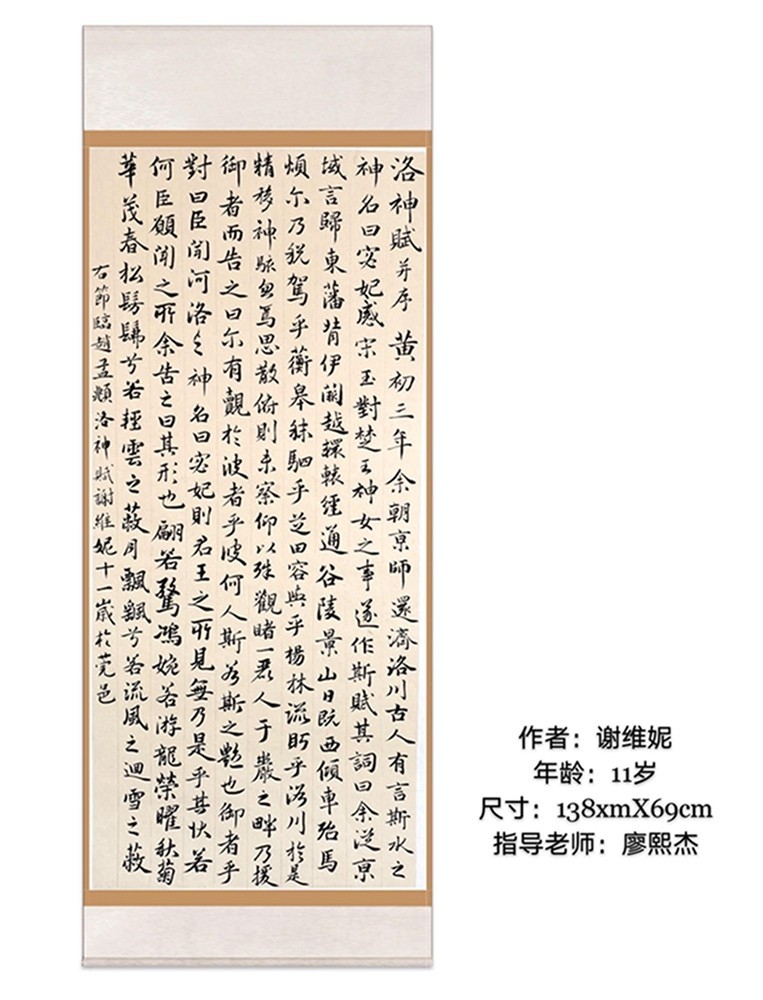 洛神賦并序 黃初三年余朝京師還濟洛川古人有言斯水之
神名曰宓妃感宋玉對楚王神女之事遂作斯賦其詞曰余從京
域言歸東藩背伊闕越轘轅經通谷陵景山日既西傾車殆馬
煩尓乃稅駕乎蘅皋秣駟乎芝田容與乎楊林流眄乎洛川於是
精移神駭忽焉思散俯則未察仰以殊觀睹一麗人于巖之畔乃援
御者而告之曰尓有覿於彼者乎彼何人斯若斯之艷也御者乎
對曰臣聞河洛之神名曰宓妃則君王之所見無乃是乎其狀若
何臣願聞之所余告之曰其形也翩若驚鴻婉若游龍榮曜秋菊
華茂春松髣髴兮若輕雲之蔽月飄飖兮若流風之迴雪之蔽
右節臨趙孟頫洛神賦謝維妮十一歲於莞邑
作者：谢维妮
年龄：11岁
尺寸：138xmX69cm
指导老师：廖熙杰